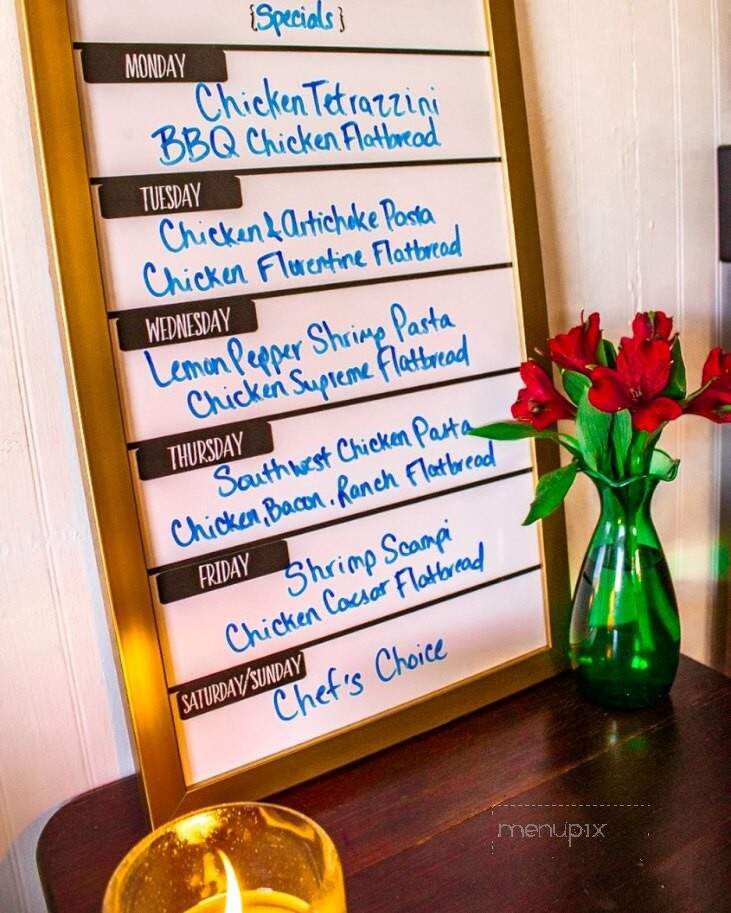 {Specials}
MONDAY
Chicken Tetrazzini
BBQ Chicken Flatbread
TUESDAY
Chicken & Artichoke Pasta
Chicken Florentine Flatbread
WEDNESDAY
Lemon Pepper Shrimp Pasta
Chicken Supreme Flatbread
THURSDAY
Southwest Chicken Pasta
Chicken, Bacon, Ranch Flatbread
FRIDAY
Shrimp Scampi
Chicken Caesar Flatbread
SATURDAY/SUNDAY
Chef's Choice
menupix